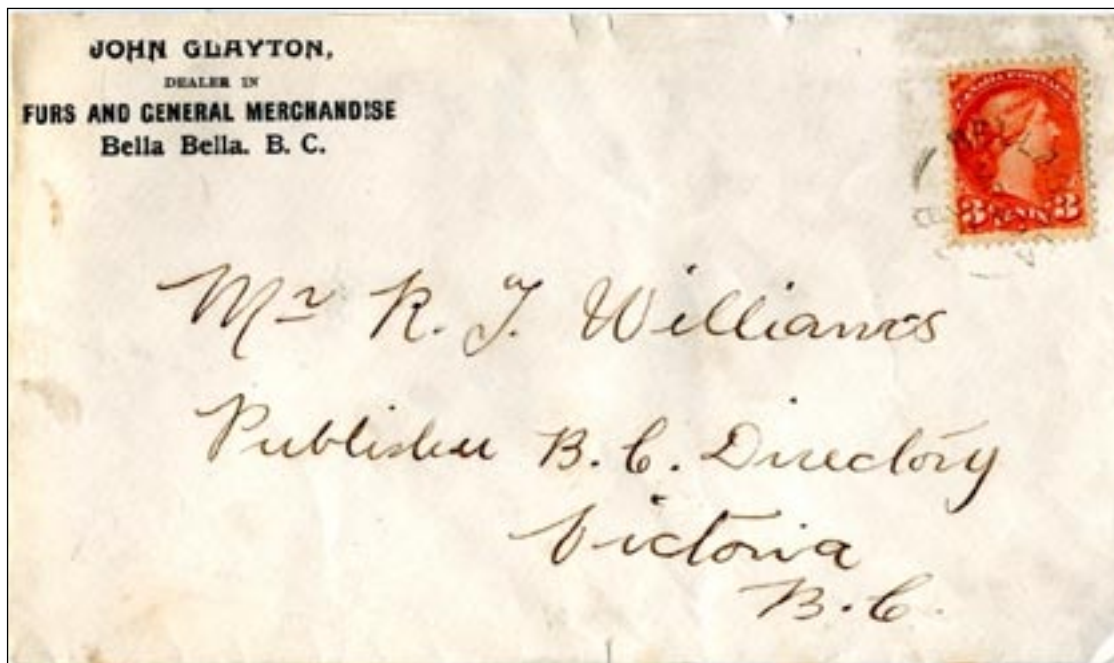 JOHN CLAYTON,
DEALER IN
FURS AND GENERAL MERCHANDISE
Bella Bella. B. C.
CANADA POSTAGE
3 CENTS 3
Mr R. T. Williams
Publisher B.C. Directory
Victoria
B.C.